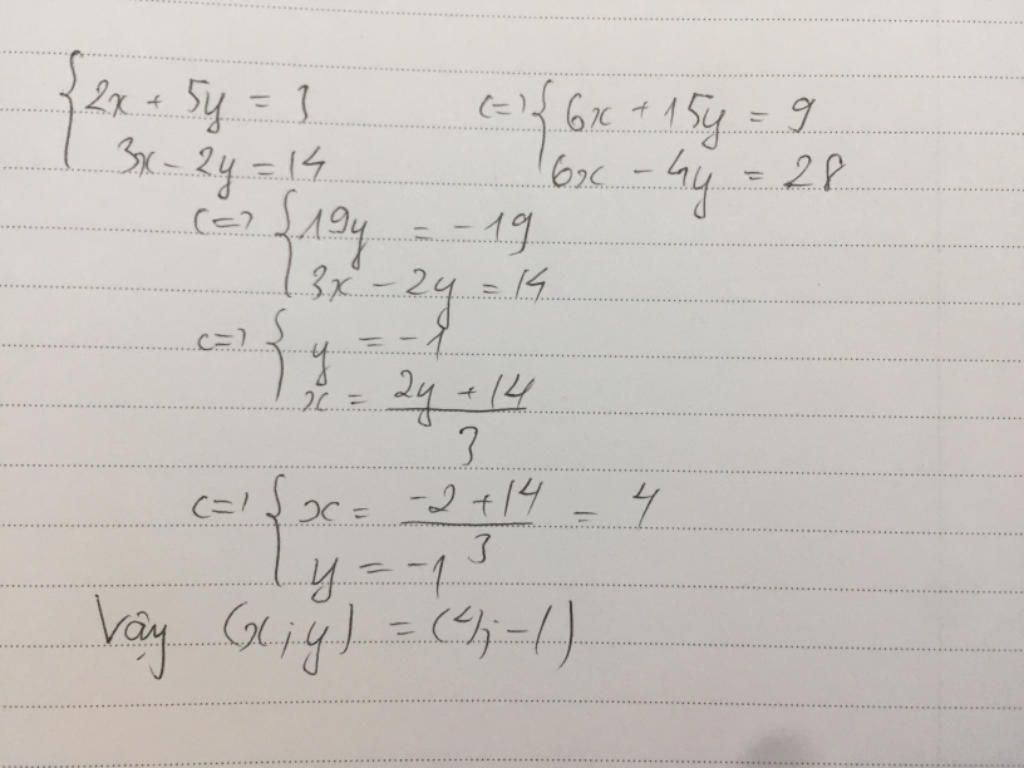 {2x + 5y = 3 <=> {6x + 15y = 9
3x - 2y = 14 6x - 4y = 28
<=> {19y = -19
3x - 2y = 14
<=> {y = -1
x = (2y + 14)/3
<=> {x = (-2 + 14)/3 = 4
y = -1
Vậy (x;y) = (4;-1)